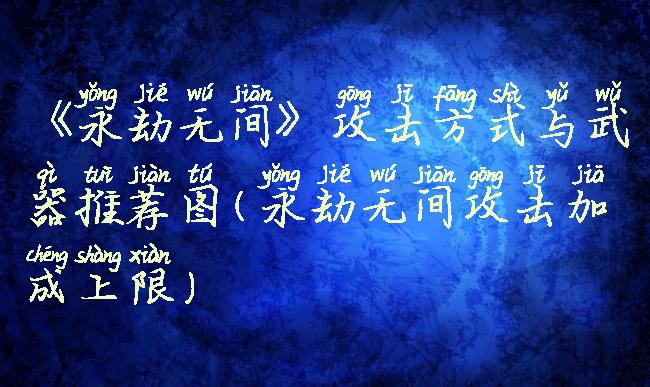 yǒng jié wú jiān gōng jī fāng shì yǔ wǔ
《永劫无间》攻击方式与武
qì tuī jiàn tú yǒng jié wú jiān gōng jī jiā
器推荐图(永劫无间攻击加
chéng shàng xiàn
成上限)